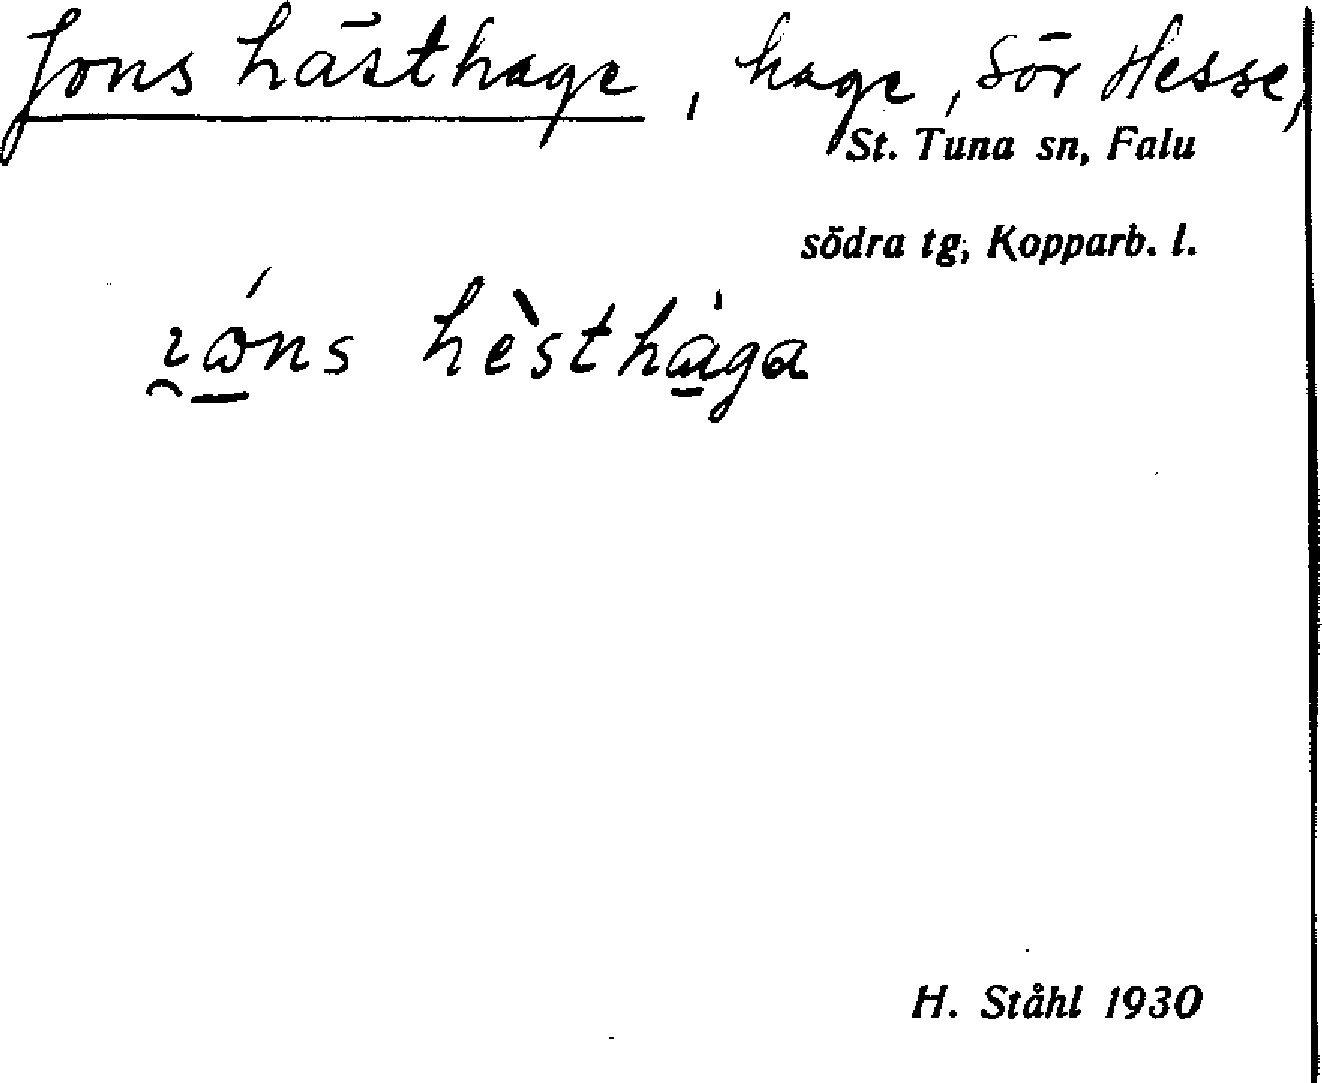 Jons hästhage, hage, Sör Hesse,
St. Tuna sn, Falu
södra tg, Kopparb. l.
ɩ̯ώ̲ns hèsthà̲ga
H. Ståhl 1930